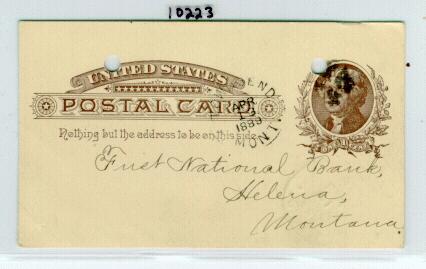 10223
UNITED STATES
POSTAL CARD
Nothing but the address to be on this side.
END
APR
1889
MONT
First National Bank,
Helena,
Montana.